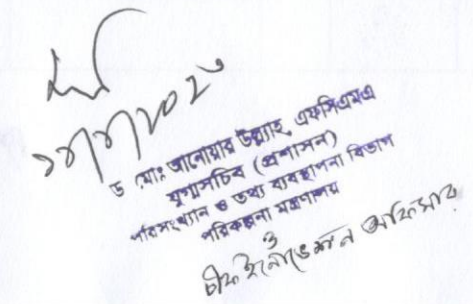 ড. মোঃ আনোয়ার উল্ল্যাহ, এফসিএমএ
যুগ্মসচিব (প্রশাসন)
পরিসংখ্যান ও তথ্য ব্যবস্থাপনা বিভাগ
পরিকল্পনা মন্ত্রণালয়
ও
চীফ ইনোভেশন অফিসার